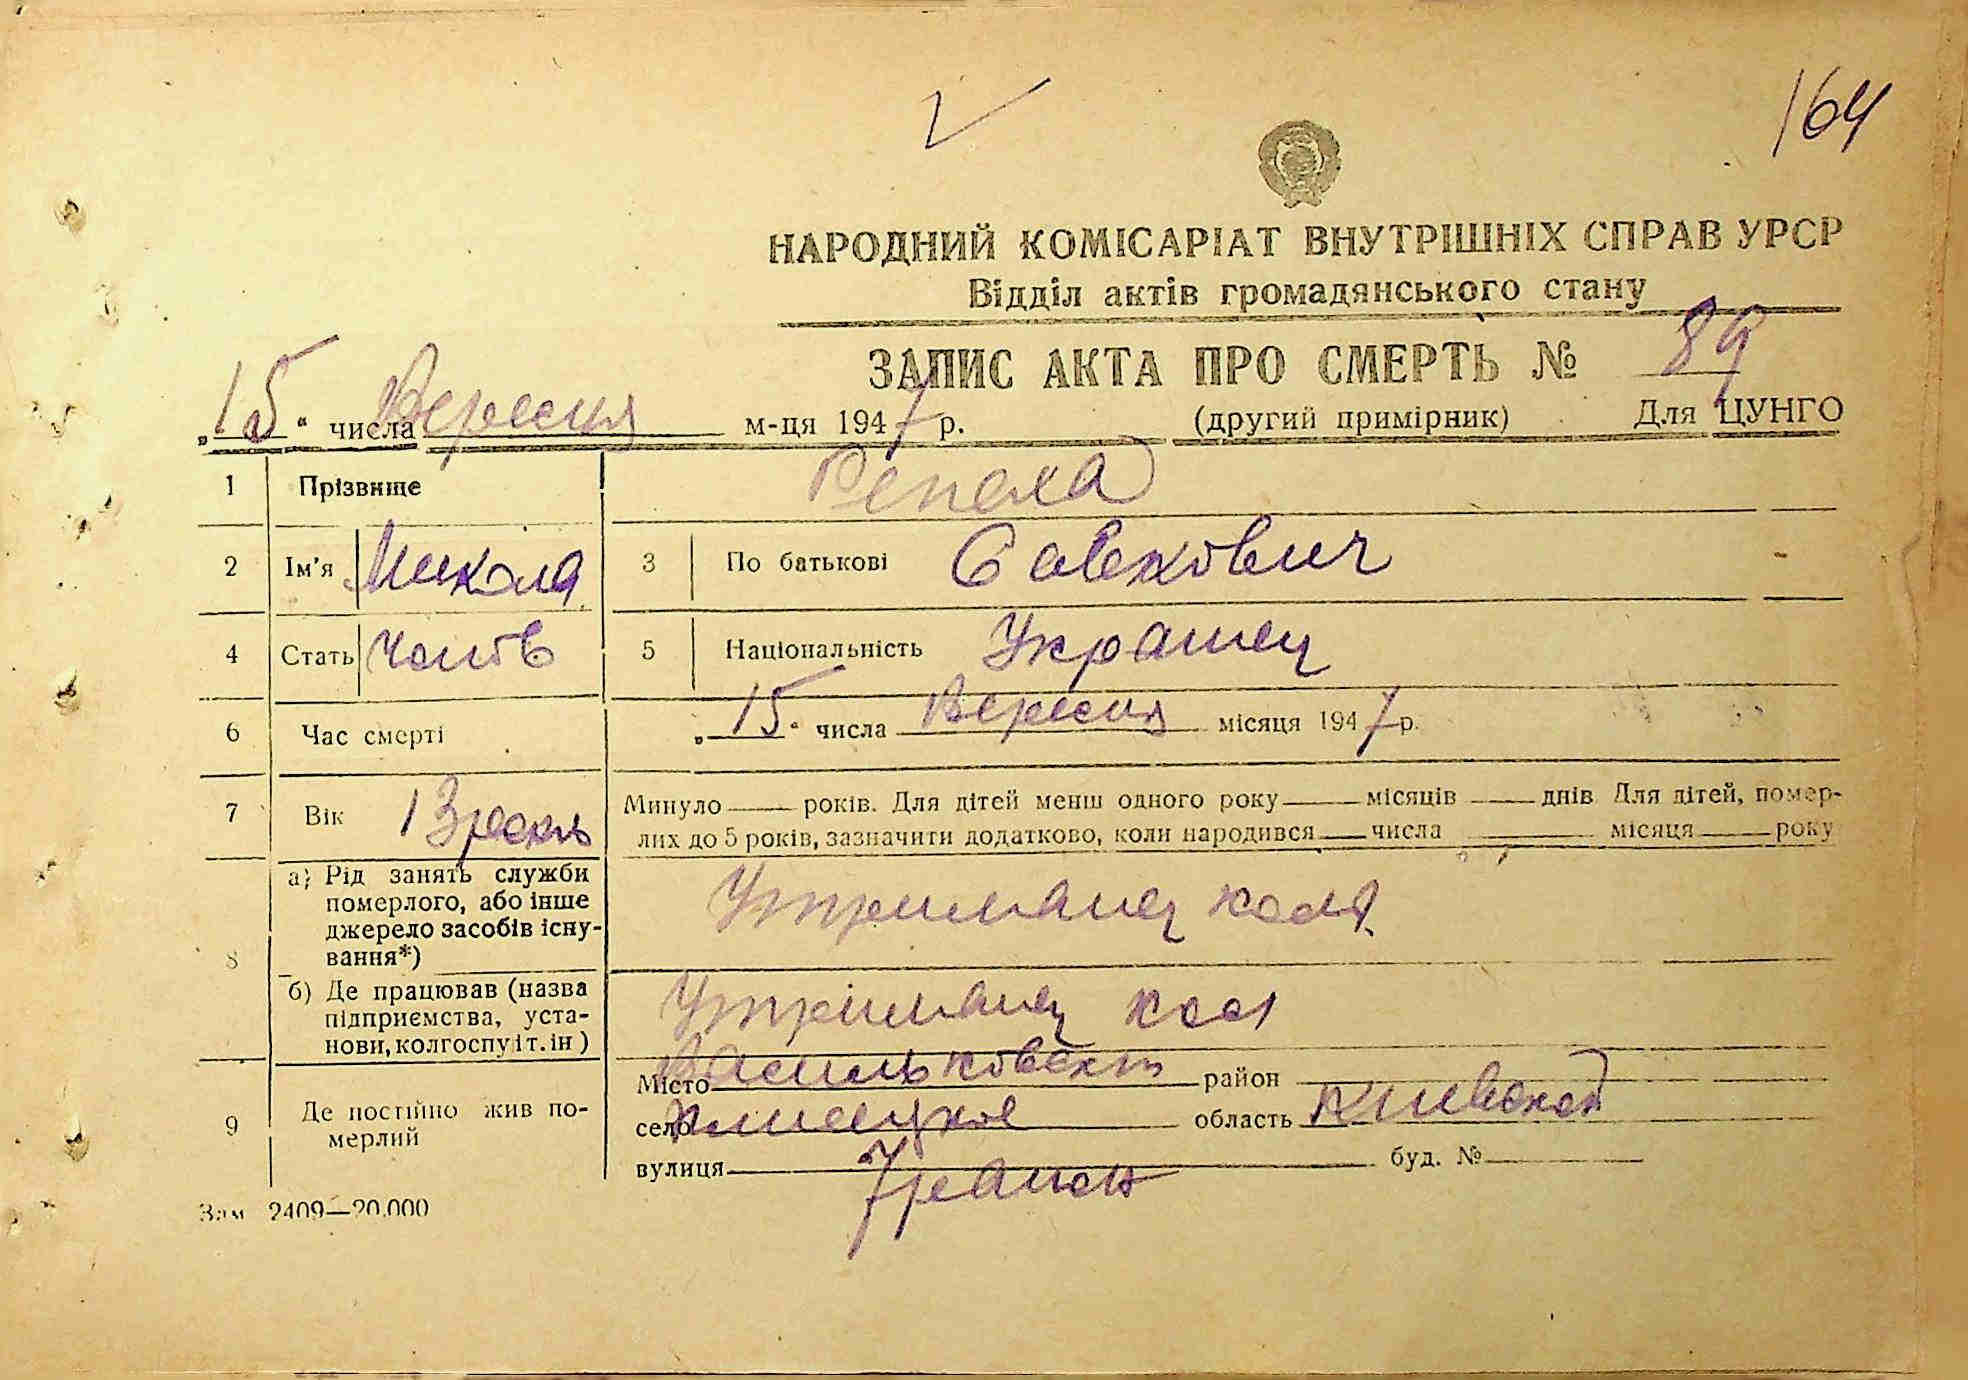 164
НАРОДНИЙ КОМІСАРІАТ ВНУТРІШНІХ СПРАВ УРСР
Відділ актів громадянського стану
ЗАПИС АКТА ПРО СМЕРТЬ № 89
„15“ числа Вересня м-ця 1947 р. (другий примірник) Для ЦУНГО
1 Прізвище Репела
2 Ім'я Микола 3 По батькові Савкович
4 Стать 5 Національність Украинец
6 Час смерті „15“ числа Вересня місяця 1947 р.
7 Вік 13 Минуло — років. Для дітей менш одного року — місяців — днів Для дітей, помер-
лих до 5 років, зазначити додатково, коли народився — числа — місяця — року
8 а) Рід занять служби
померлого, або інше
джерело засобів існу-
вання*)
Утриманец
б) Де працював (назва
підприємства, уста-
нови, колгоспу і т. ін)
Утриманец
9 Де постійно жив по-
мерлий
Місто Васильковский район
село область Киевской
вулиця буд. №
Зам 2409—20.000